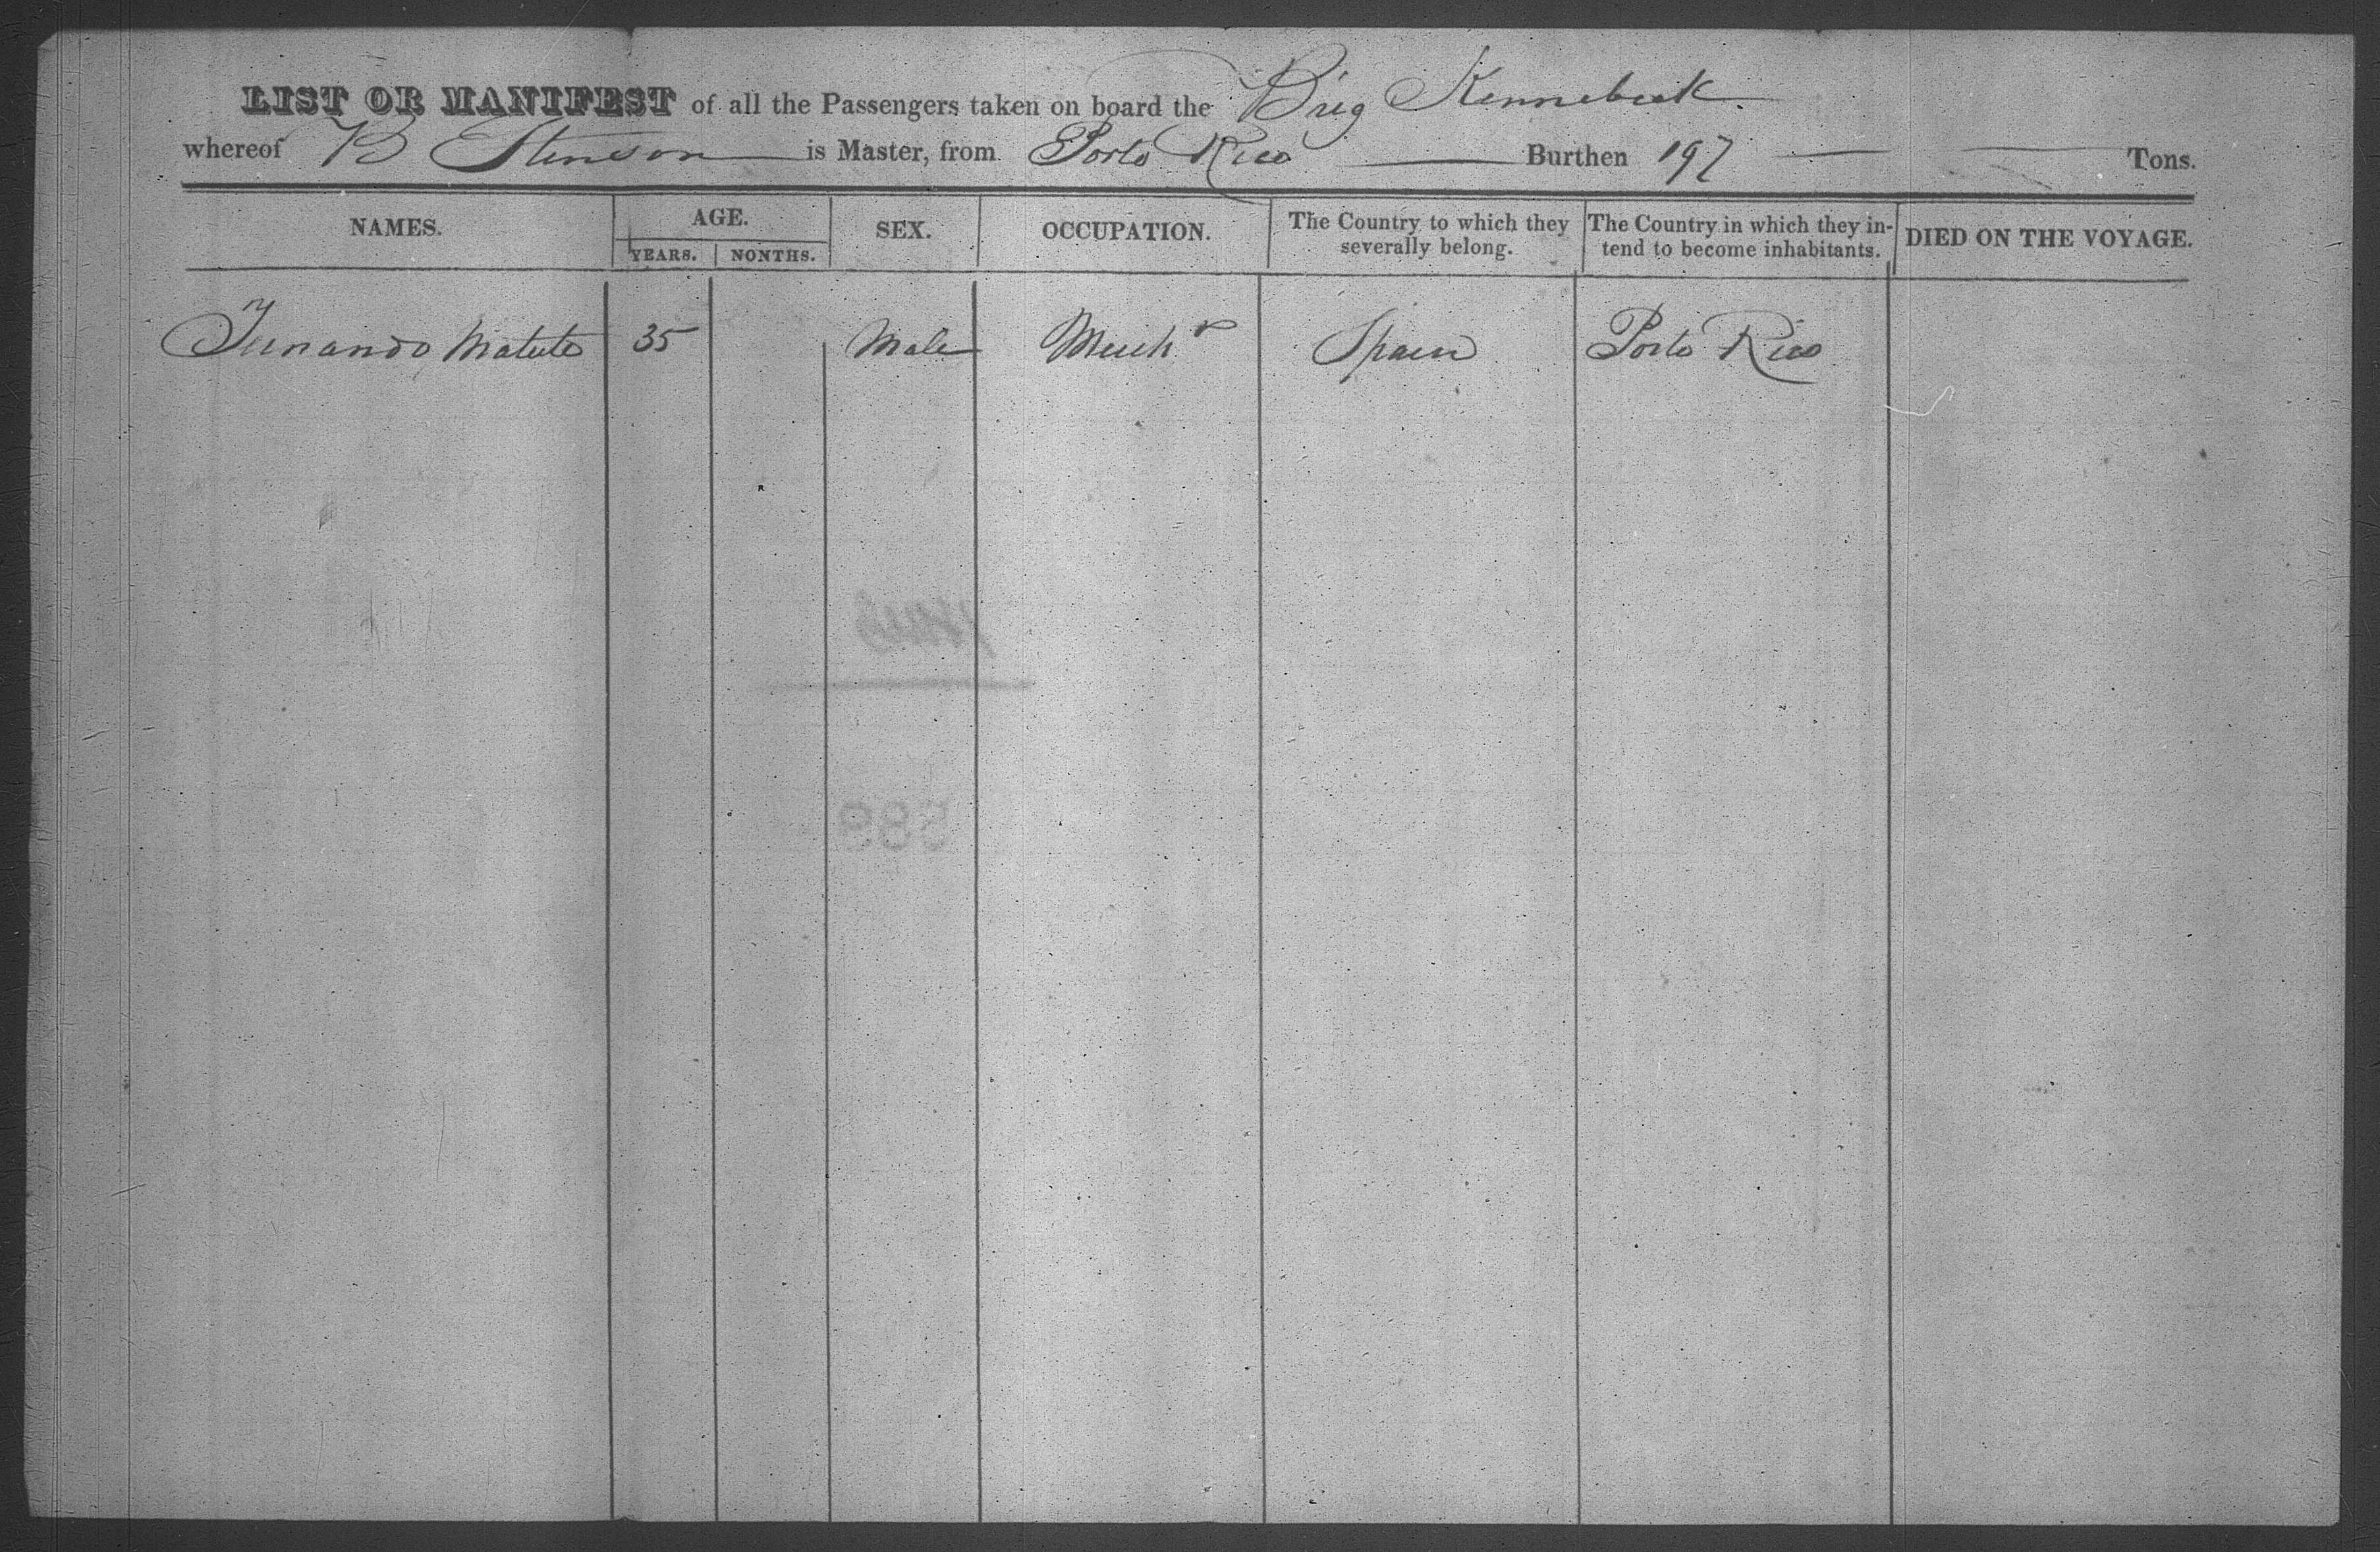 LIST OR MANIFEST of all the Passengers taken on board the Brig Kennebeck
whereof B Stinson is Master, from Porto Rico Burthen 197 Tons.
NAMES. AGE. SEX. OCCUPATION. The Country to which they severally belong. The Country in which they in-tend to become inhabitants. DIED ON THE VOYAGE.
YEARS. NONTHS.
Fernando Matute 35 Male Mercht Spain Porto Rico
589